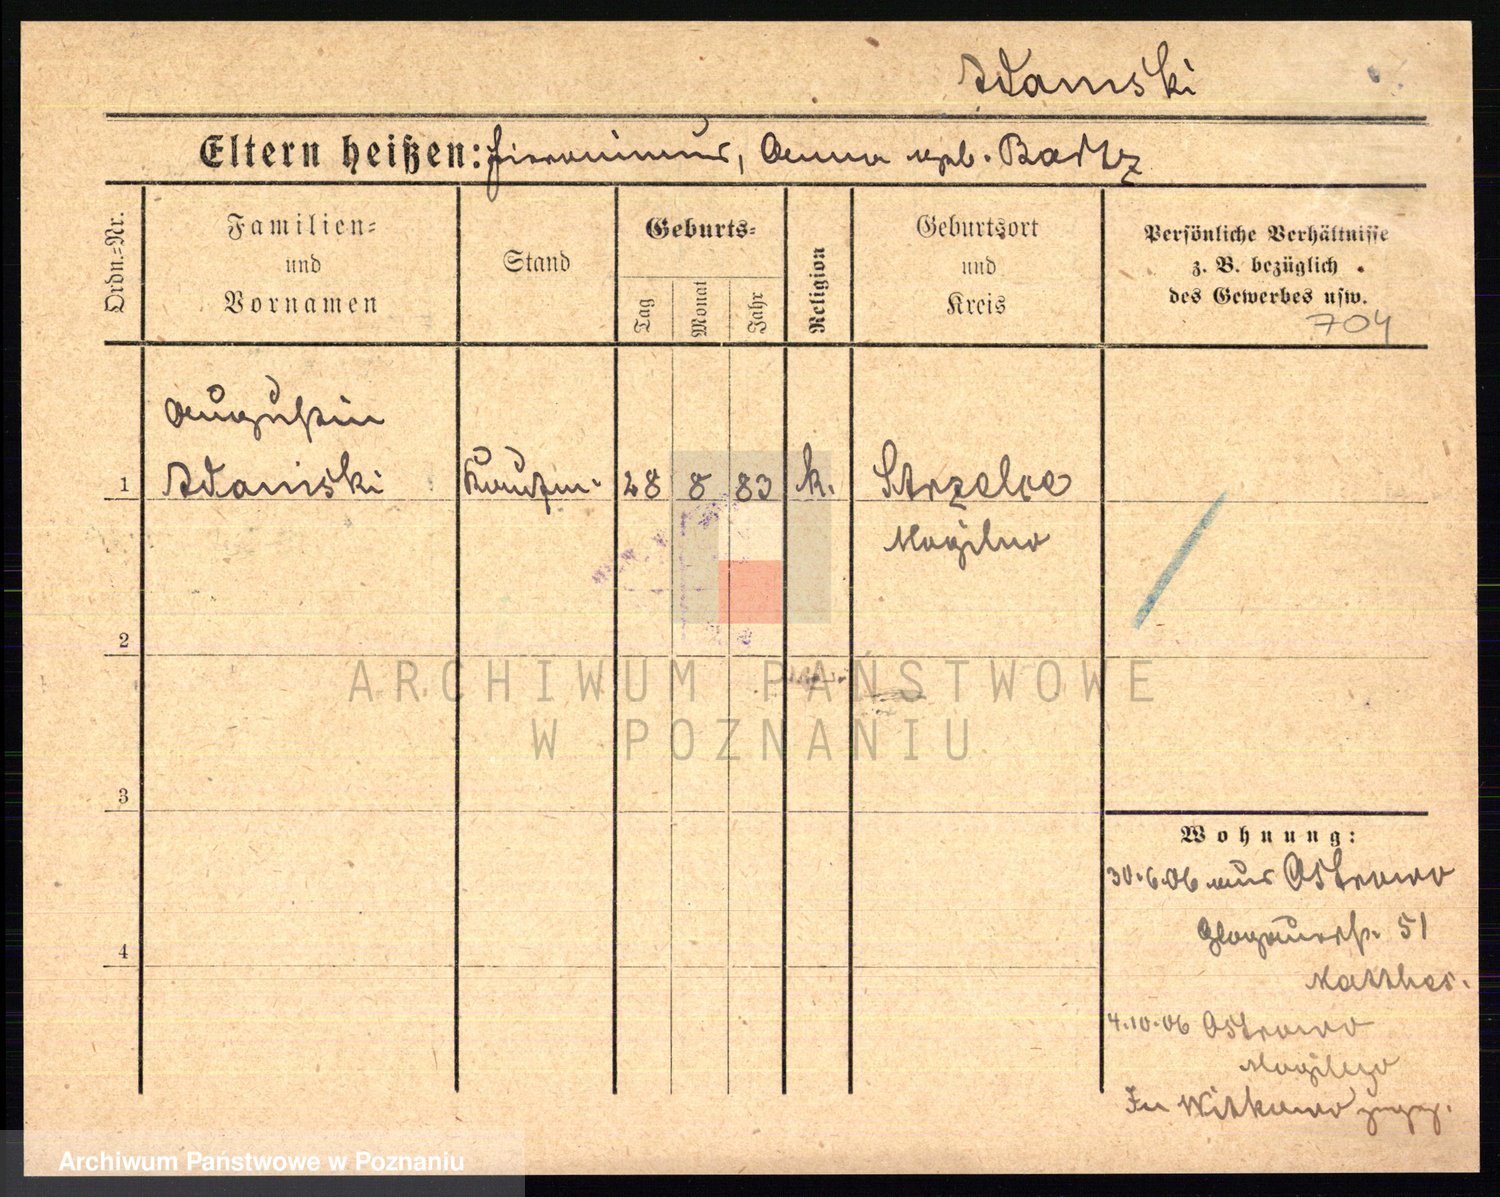 Adamski
Eltern heißen: Hieronimus, Anna geb. Bartz
Ordn.-Nr.
Familien-
und
Vornamen
Stand
Geburts-
Tag
Monat
Jahr
Religion
Geburtsort
und
Kreis
Persönliche Verhältnisse
z. B. bezüglich
des Gewerbes usw.
704
Augustin
1 Adamski Kaufm. 28 8 83 k. Strzelce
Mogilno
2
ARCHIWUM PAŃSTWOWE
W POZNANIU
3
Wohnung:
30.6.06 aus Ostrowo
Glogauerstr. 51
Matthes.
4
4.10.06 Ostrowo
In Witkowo
Archiwum Państwowe w Poznaniu